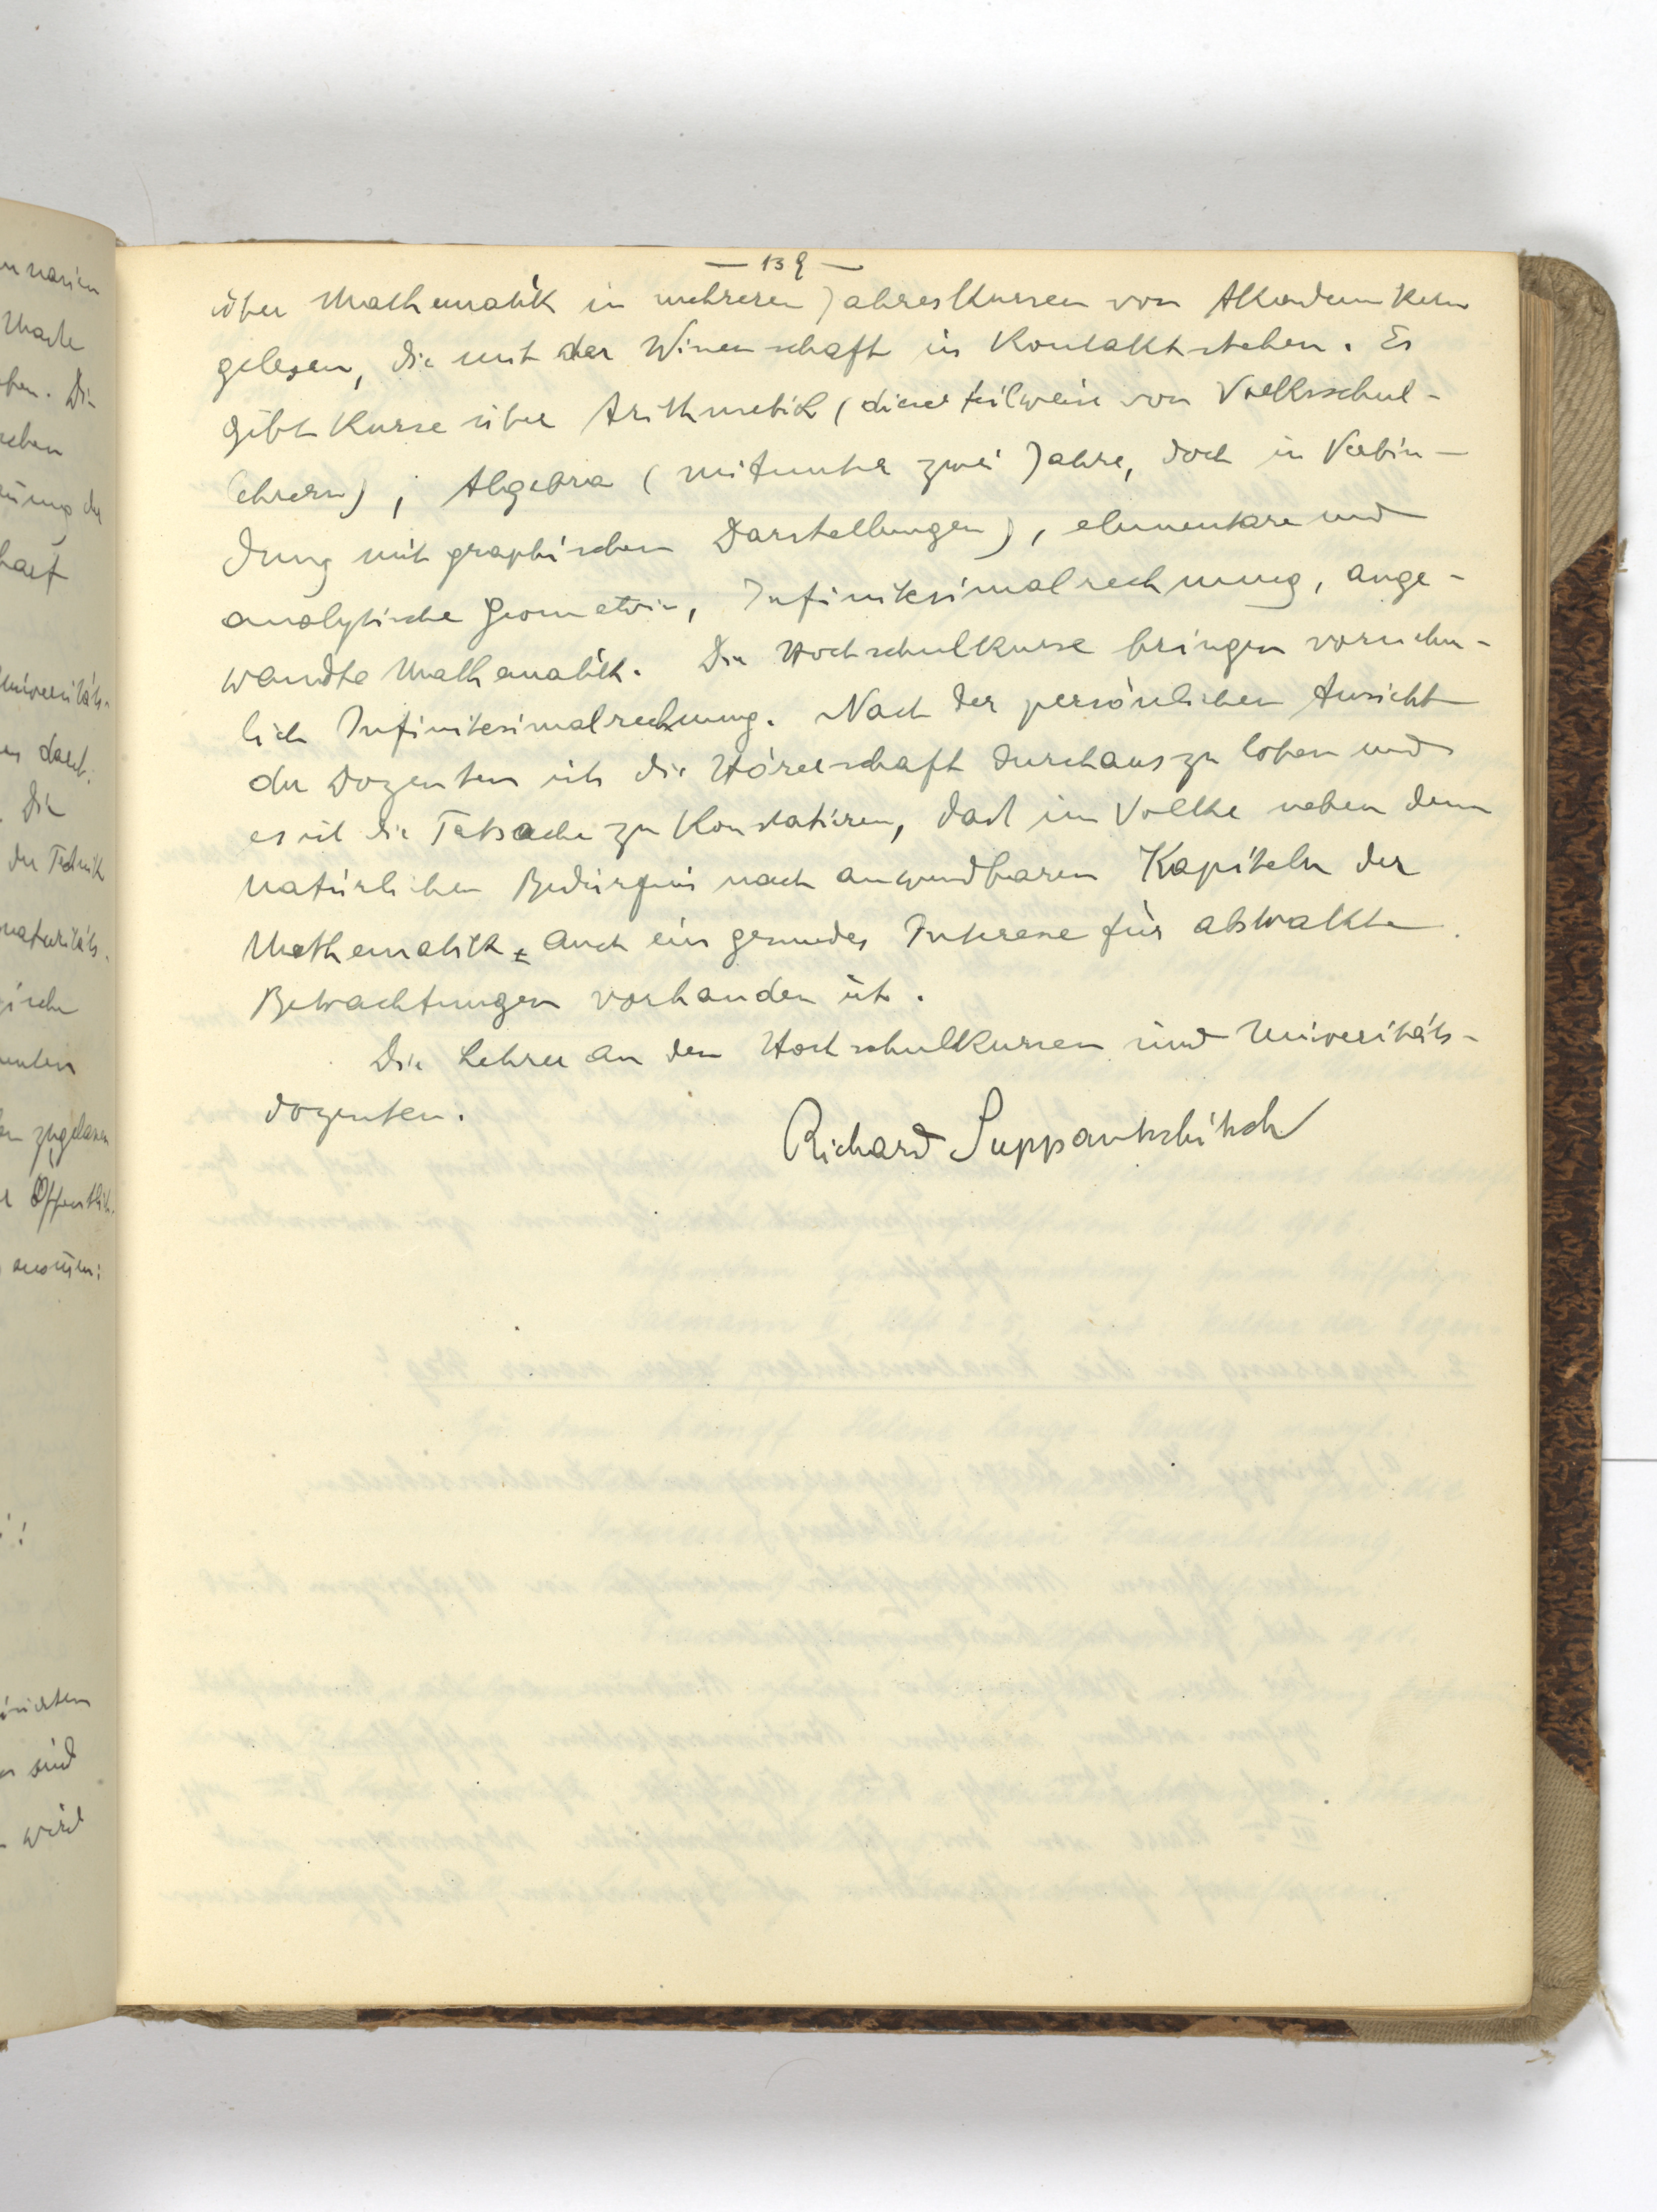 — 139 —
über Mathematik in mehreren Jahreskursen von Akademikern
gelesen, die mit der Wissenschaft in Kontakt stehen. Es
gibt Kurse über Arithmetik (diese teilweise von Volksschul-
lehrern), Algebra (mitunter zwei Jahre, doch in Verbin-
dung mit graphischen Darstellungen), elementare und
analytische Geometrie, Infinitesimalrechnung, ange-
wandte Mathematik. Die Hochschulkurse bringen vornehm-
lich Infinitesimalrechnung. Nach der persönlichen Ansicht
der Dozenten ist die Hörerschaft durchaus zu loben und
es ist die Tatsache zu konstatieren, dass im Volke neben dem
natürlichen Bedürfnis nach anwendbaren Kapiteln der
Mathematik auch ein gesundes Interesse für abstrakte
Betrachtungen vorhanden ist.
Die Lehrer an den Hochschulkursen sind Universitäts-
dozenten.
Richard Suppantschitsch